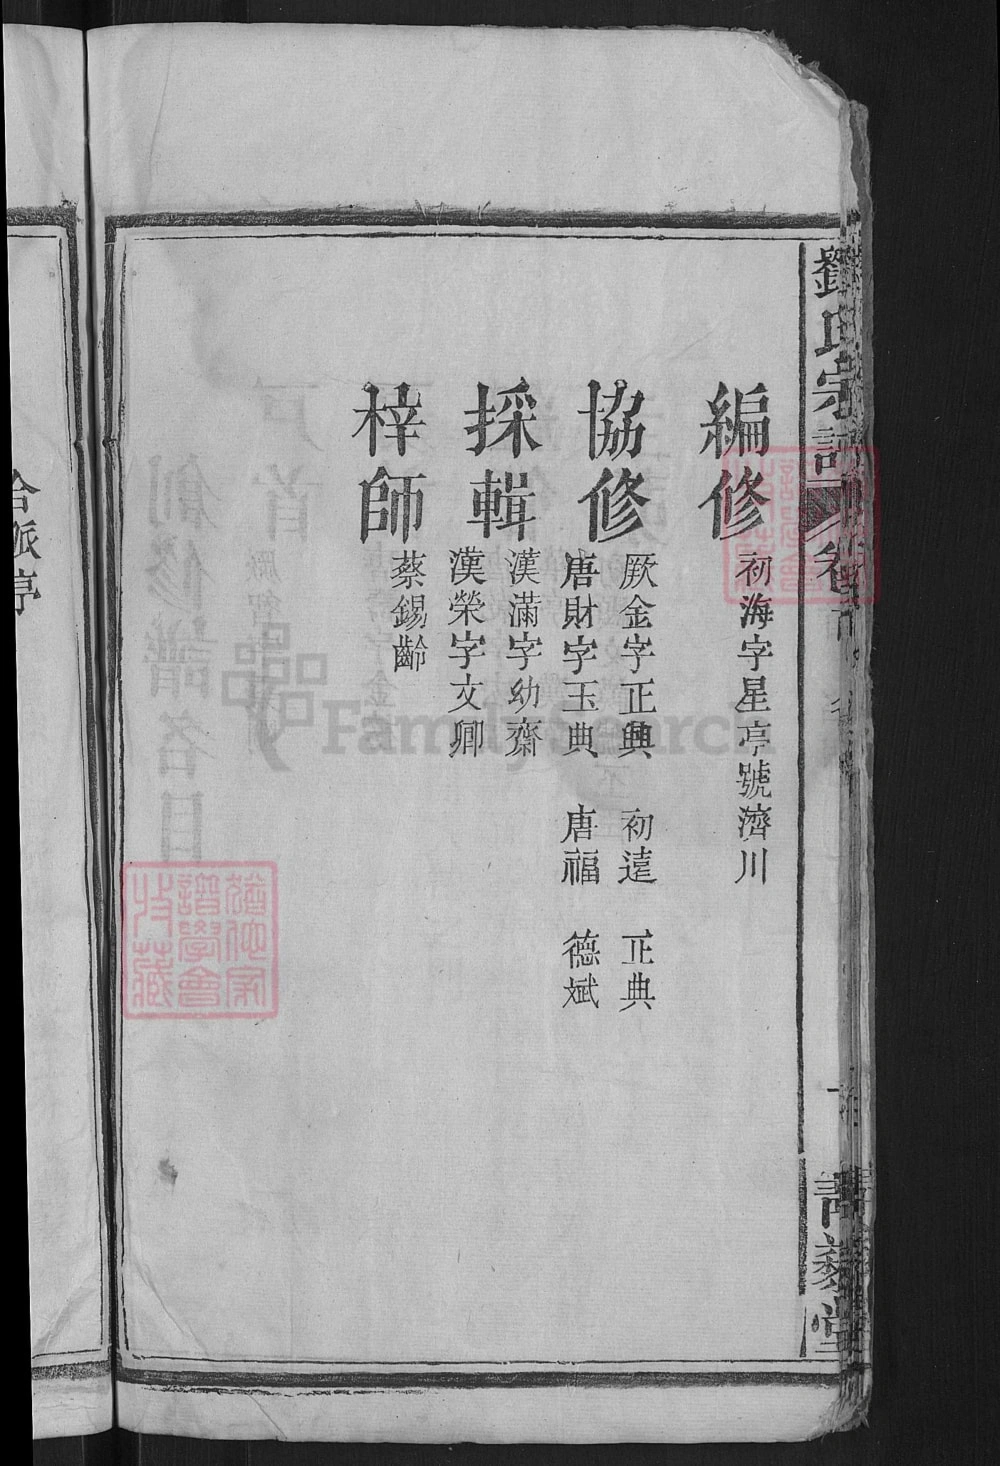 劉氏宗譜
卷首
編修
初海字星亭號濟川
協修
厥金字正興 初遠 正典
唐財字玉典 唐福 德斌
採輯
漢滿字幼齋
漢榮字文卿
梓師
蔡錫齡
堂
合派亭
FamilySearch
譜學會
收藏